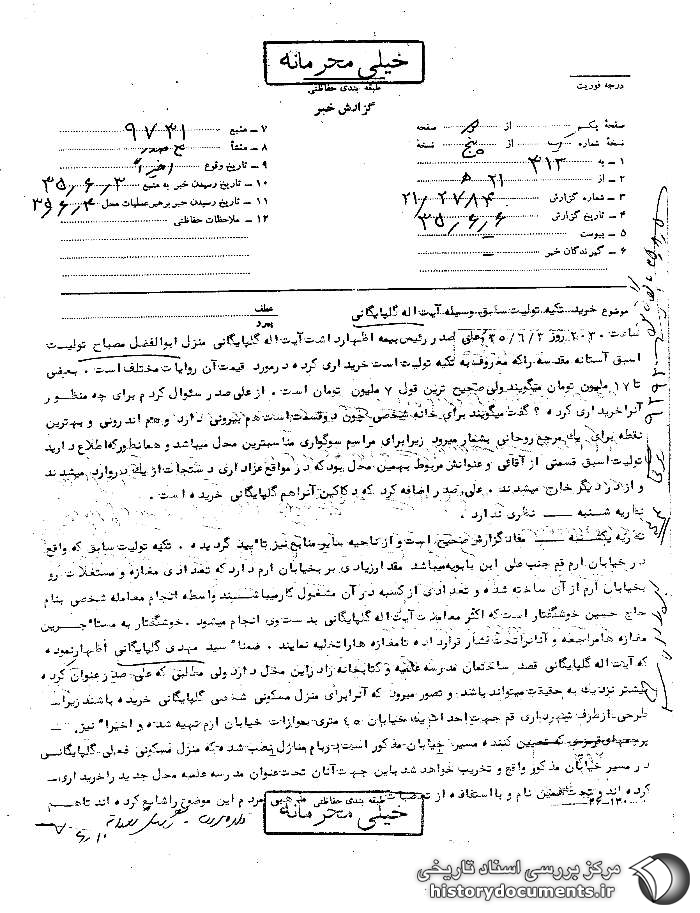 خیلی محرمانه
طبقه بندی حفاظتی
درجه فوریت
گزارش خبر
صفحهٔ یکم از دو صفحه
نسخهٔ شماره از پنج نسخه
۱ – به ۳۱۲
۲ – از ۲۱ ه
۳ – شماره گزارش ۲۱/۲۷۸۴
۴ – تاریخ گزارش ۳۵/۶/۶
۵ – پیوست
۶ – گیرندگان خبر
۷ – منبع ۹۷۳۱
۸ – منشأ ع صدر
۹ – تاریخ وقوع اخیراً
۱۰ – تاریخ رسیدن خبر به منبع ۳۵،۶،۳
۱۱ – تاریخ رسیدن خبر برهبر عملیات محل ۳۵،۶،۴
۱۲ – ملاحظات حفاظتی
موضوع خرید تکیه تولیت سابق وسیله آیت اله گلپایگانی
عطف
پیرو
ساعت ۲۰۳۰ روز ۳۵/۶/۲ علی صدر رئیس بیمه اظهار داشت آیت اله گلپایگانی منزل ابوالفضل مصباح تولیت
اسبق آستانه مقدسه راکه معروف به تکیه تولیت است خریداری کرده درمورد قیمت آن روایات مختلف است . بعضی
تا ۱۷ ملیون تومان میگویند ولی صحیح ترین قول ۷ ملیون تومان است . از علی صدر سئوال کردم برای چه منظور
آنرا خریداری کرده ؟ گفت میگویند برای خانه شخصی چون دو قسمت است هم بیرونی دارد و هم اندرونی و بهترین
نقطه برای یك مرجع روحانی بشمار میرود زیرا برای مراسم سوگواری مناسبترین محل میباشد و همانطورکه اطلاع دارید
تولیت اسبق قسمتی از آقائی و عنوانش مربوط بهمین محل بود که در مواقع عزاداری دستجات از یك در وارد میشدند
و از در دیگر خارج میشدند . علی صدر اضافه کرد که دکاکین آنرا هم گلپایگانی خریده است .
نظریه شنبه – نظری ندارد .
نظریه یکشنبه – مفاد گزارش صحیح است و از ناحیه سایر منابع نیز تائید گردیده . تکیه تولیت سابق که واقع
در خیابان ارم قم جنب علی ابن بابویه میباشد مقدار زیادی بر خیابان ارم دارد که تعدادی مغازه و مستغلات رو
بخیابان ارم از آن ساخته شده و تعدادی از کسبه در آن مشغول کار میباشند واسطه انجام معامله شخصی بنام
حاج حسین خوشگفتار است که اکثر معاملات آیت اله گلپایگانی بدست وی انجام میشود . خوشگفتار به مستأجرین
مغازه ها مراجعه و آنانرا تحت فشار قرار داده تا مغازه ها را تخلیه نمایند . ضمناً سید مهدی گلپایگانی اظهار نموده
که آیت اله گلپایگانی قصد ساختمان مدرسه علمیه و کتابخانه را در این محل دارد ولی مطالبی که علی صدر عنوان کرده
بیشتر نزدیك به حقیقت میتواند باشد و تصور میرود که آنرا برای منزل مسکونی شخصی گلپایگانی خریده باشند زیرا
طرحی از طرف شهرداری قم جهت احداث یك خیابان ۴۵ متری بموازات خیابان ارم تهیه شده و اخیراً نیز
که تعیین کننده مسیر خیابان مذکور است بر بام منازل نصب شده که منزل مسکونی فعلی گلپایگانی
در مسیر خیابان مذکور واقع و تخریب خواهد شد باین جهت آنان تحت عنوان مدرسه علمیه محل جدید را خریداری
کرده اند و تحت همین نام و با استفاده از تعصبات مذهبی مردم این موضوع را شایع کرده اند تا هم
طبقه بندی حفاظتی
خیلی محرمانه
۳۶–۱۳۰
مرکز بررسی اسناد تاریخی
historydocuments.ir